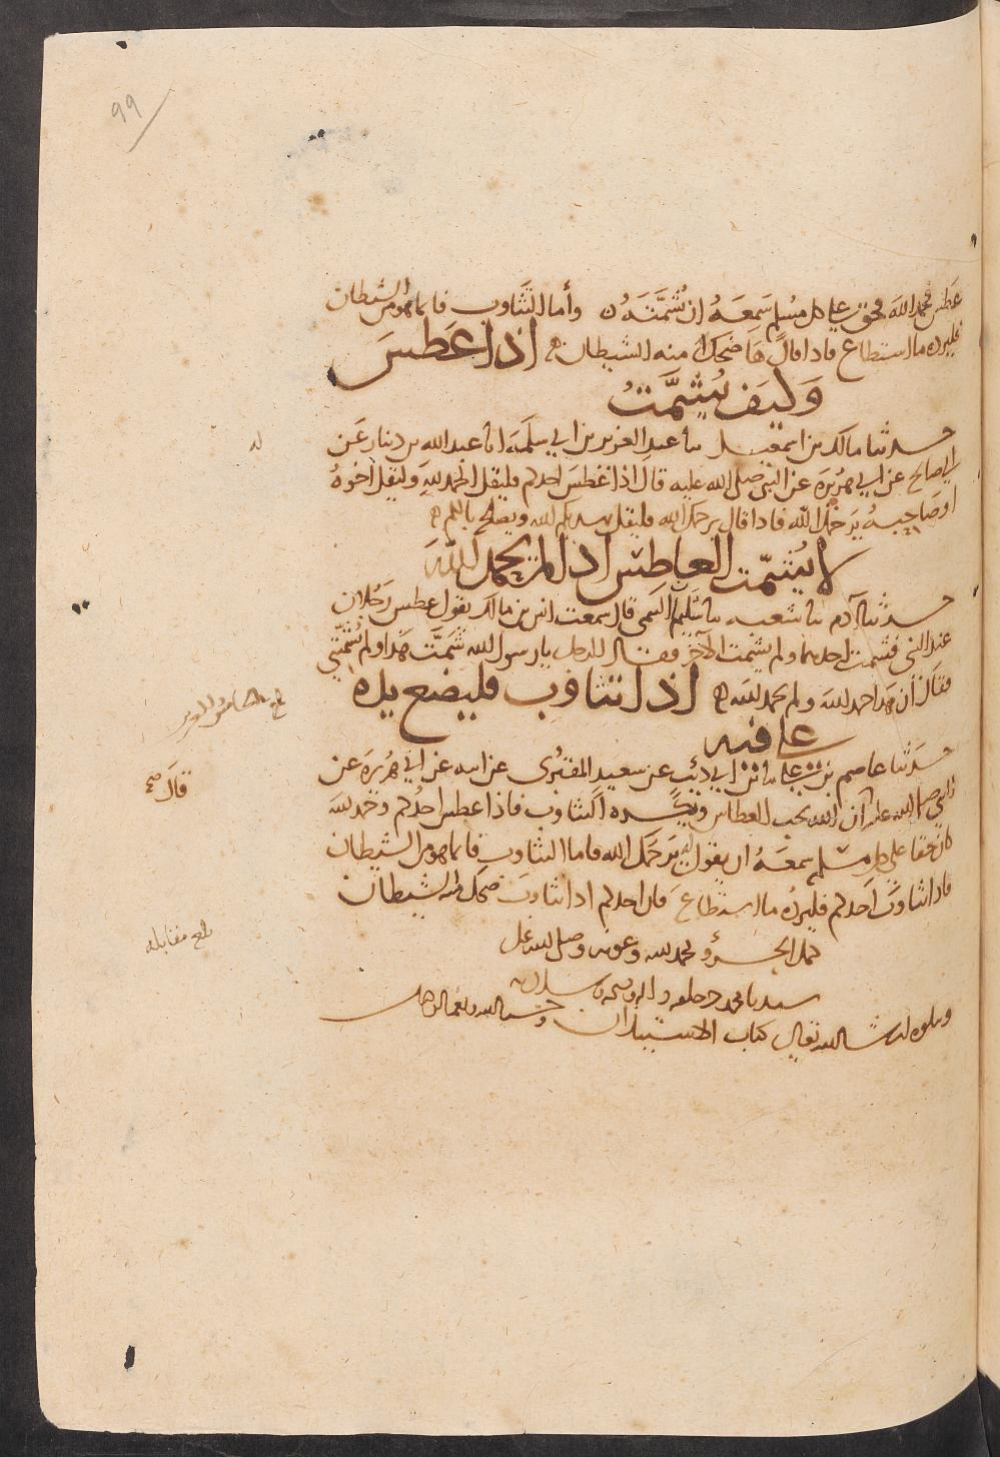 99
عطس فحمد الله فحق على كل مسلم سمعه ان يشمته وأما التثاوب فانما هو من الشيطان
فليرده ما استطاع فاذا قال ها ضحك منه الشيطان اذا عطس
كيف يشمت
حدثنا مالك بن اسمعيل نا عبد العزيز بن ابي سلمة انا عبد الله بن دينار عن
ابي صالح عن ابي هريرة عن النبي صلى الله عليه قال اذا عطس احدكم فليقل الحمد لله وليقل اخوه
او صاحبه يرحمك الله فاذا قال يرحمك الله فليقل يهديكم الله ويصلح بالكم
لا يشمت العاطس اذا لم يحمد الله
حدثنا آدم نا شعبه نا سليم التيمي قال سمعت انس بن مالك يقول عطس رجلان
عند النبي فشمت احدهما ولم يشمت الآخر فقال الرجل يا رسول الله شمت هذا ولم تشمتني
فقال ان هذا حمد الله ولم يحمد الله اذا تثاوب فليضع يده
على فيه
حدثنا عاصم بن علي نا ابن ابي ذئب عن سعيد المقبري عن ابيه عن ابي هريرة عن
النبي صلى الله عليه ان الله يحب العطاس ويكره التثاوب فاذا عطس احدكم وحمد الله
كان حقا على كل مسلم سمعه ان يقول له يرحمك الله فاما التثاوب فانما هو من الشيطان
فاذا تثاوب احدكم فليرده ما استطاع فان احدكم اذا تثاوب ضحك منه الشيطان
كمل الجزء بحمد الله وعونه وصلى الله على
سيدنا محمد
ويتلوه ان شا الله تعالى كتاب الاستيذان وحسبنا الله ونعم الوكيل
قال صح
بلغ مقابلة